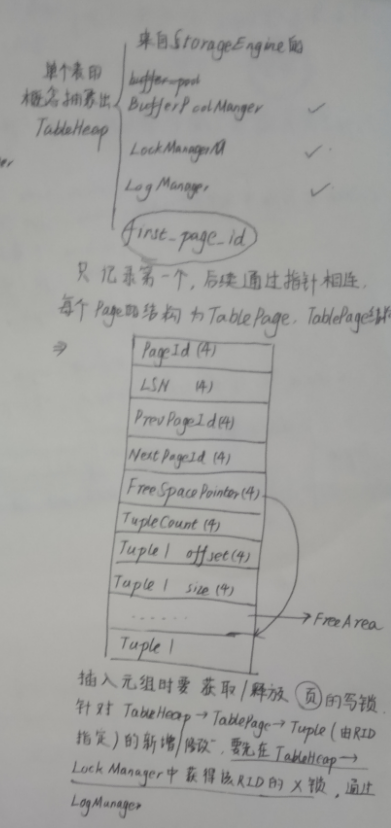 来自StorageEngine的
单个表的
概念抽象出
TableHeap
buffer-pool
BufferPoolManger ✓
LockManager ✓
Log Manager ✓
first_page_id
只记录第一个,后续通过指针相连.
每个Page的结构为TablePage. TablePage结构
⇒
PageId (4)
LSN (4)
PrevPageId (4)
NextPageId (4)
FreeSpacePointer (4)
TupleCount (4)
Tuple 1 offset (4)
Tuple 1 size (4)
......
→ FreeArea
Tuple 1
插入元组时要 获取/释放 页 的写锁
针对 TableHeap → TablePage → Tuple (由RID
指定) 的新增/修改, 要先在 TableHeap →
Lock Manager 中获得该RID的 X 锁, 通过
LogManager